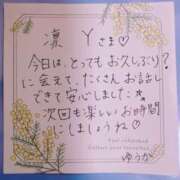 凛 Yさま♡
今日は、とってもお久しぶり?
に会えて、たくさんお話し
できて安心しました★
次回も楽しいお時間
にしましょうね♡
ゆうか